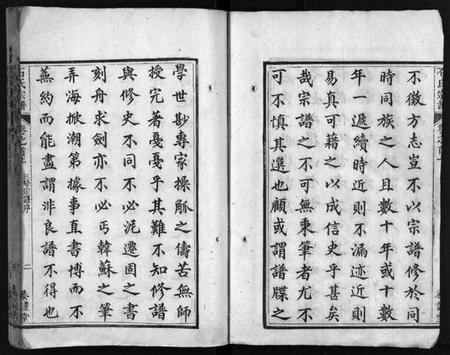 石氏宗譜
卷之首
不徵方志豈不以宗譜修於同
時同族之人且數十年或十數
年一遞續時近則不漏迹近則
易真可藉之以成信史乎甚矣
哉宗譜之不可無秉筆者尤不
可不慎其選也顧或謂譜牒之
學世尠專家操觚之儔苦無師
授完著戞戞乎其難不知修譜
與修史不同不必泥遷固之書
刻舟求劍亦不必丐韓蘇之筆
弄海掀潮第據事直書博而不
蕪約而能盡謂非良譜不得也
石氏宗譜
卷之首
二